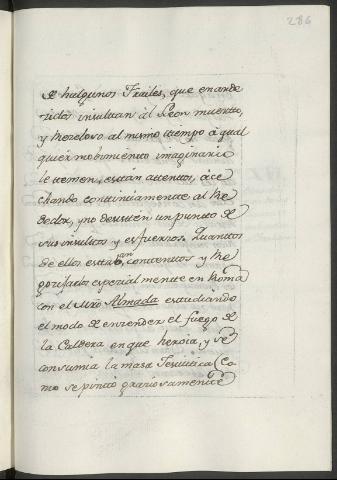 286
de hulgunos Frailes, que enarde
zidos insultan al Leon muertto,
y rezeloso al mismo ttiempo á qual
quier mobimientto imaginario
le ttemen, esttan attenttos, áce
chando conttinúamentte al Re
dedor, y no desistten un puntto de
sus insulttos y esfuerzos. Quanttos
de ellos esttaban conttenttos y Re
gozijados especialmentte en Roma
con el Mró Almada esttudiando
el modo de enzender el fuego de
la Caldera en que hervia, y se
consumia la masa Jesuittica (Co
mo se pintto graziosamentte